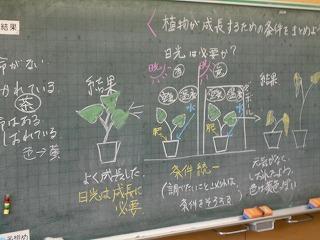 結果
植物が成長するための条件をまとめよう
日光は必要か?
命がない
かれている
茶
命はある
しおれている
色→黄
結果
よく成長した
日光は成長に
必要
日光
水
肥
日光
水
肥
条件統一
(調べたいこと以外は、
条件をそろえる)
結果
元気がなく、
しおれたよう。
色は黄色っぽい